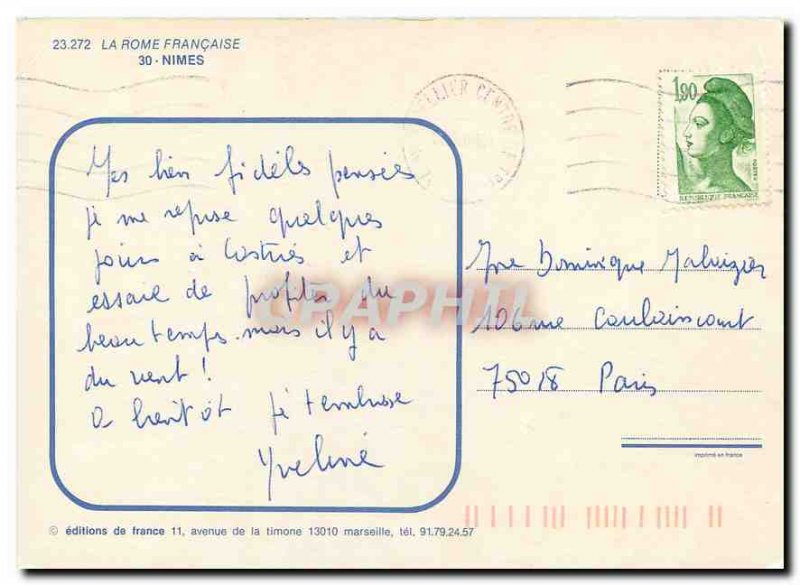 23.272 LA ROME FRANÇAISE
30 - NIMES
MONTPELLIER CENTRE
1,90
REPUBLIQUE FRANÇAISE
Mes bien fidèles pensées
je me repose quelques
jours à Castries et
essaie de profiter du
beau temps. mais il y a
du vent !
A bientôt je t'embrasse
Yveline
Dominique
106 rue Caulaincourt
75018 Paris
CPAPHIL
imprimé en france
© éditions de france 11, avenue de la timone 13010 marseille, tél. 91.79.24.57